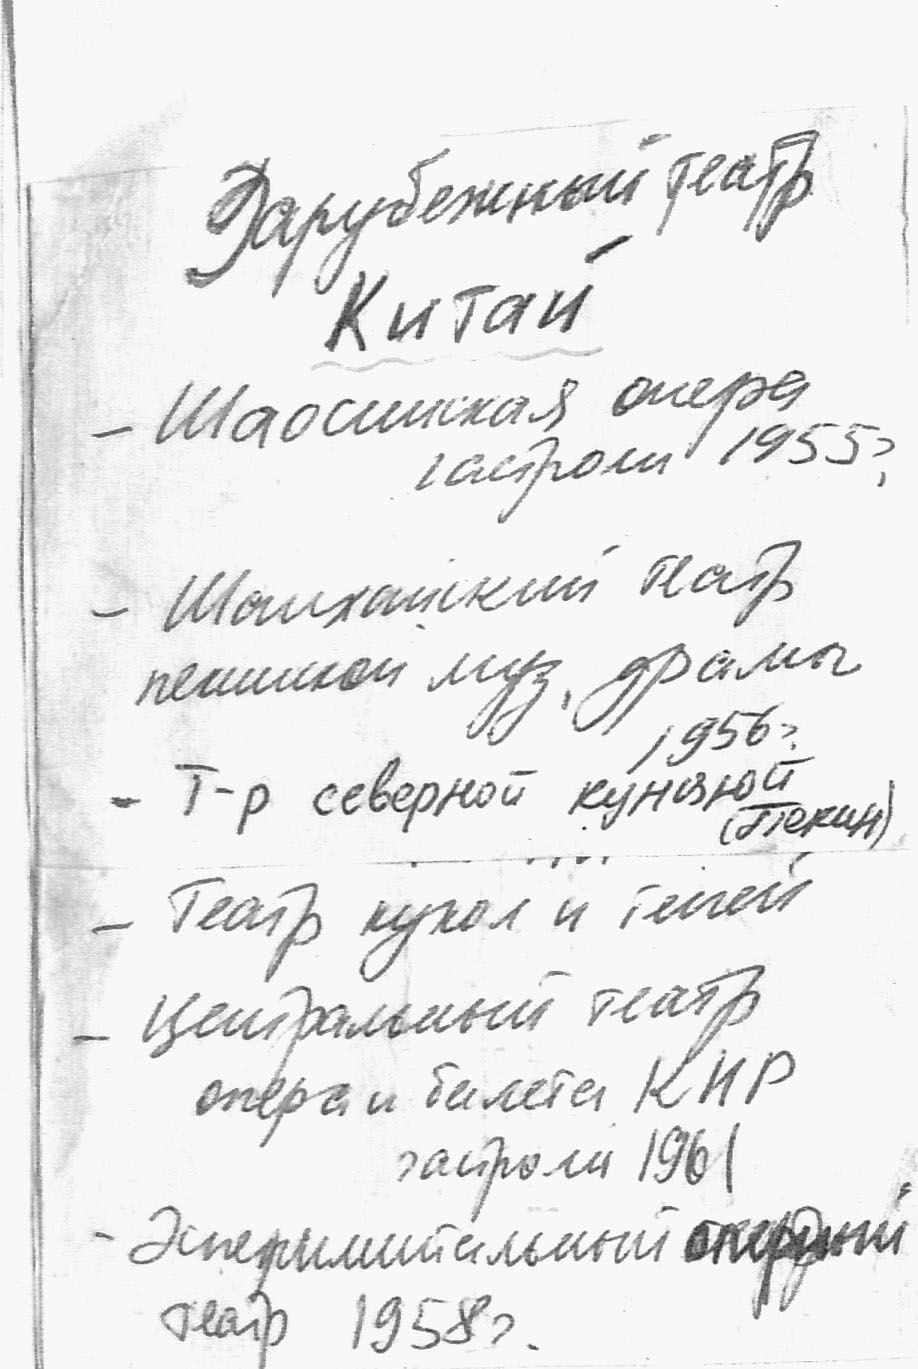 Зарубежный театр
Китай
- Шаосинская опера
гастроли 1955 г.
- Шанхайский театр
пекинской муз. драмы
1956 г.
- Т-р северной
(Пекин)
- Театр кукол и теней
- Центральный театр
опера и балета КНР
гастроли 1961
- Эксперимитальный оперный
театр 1958 г.